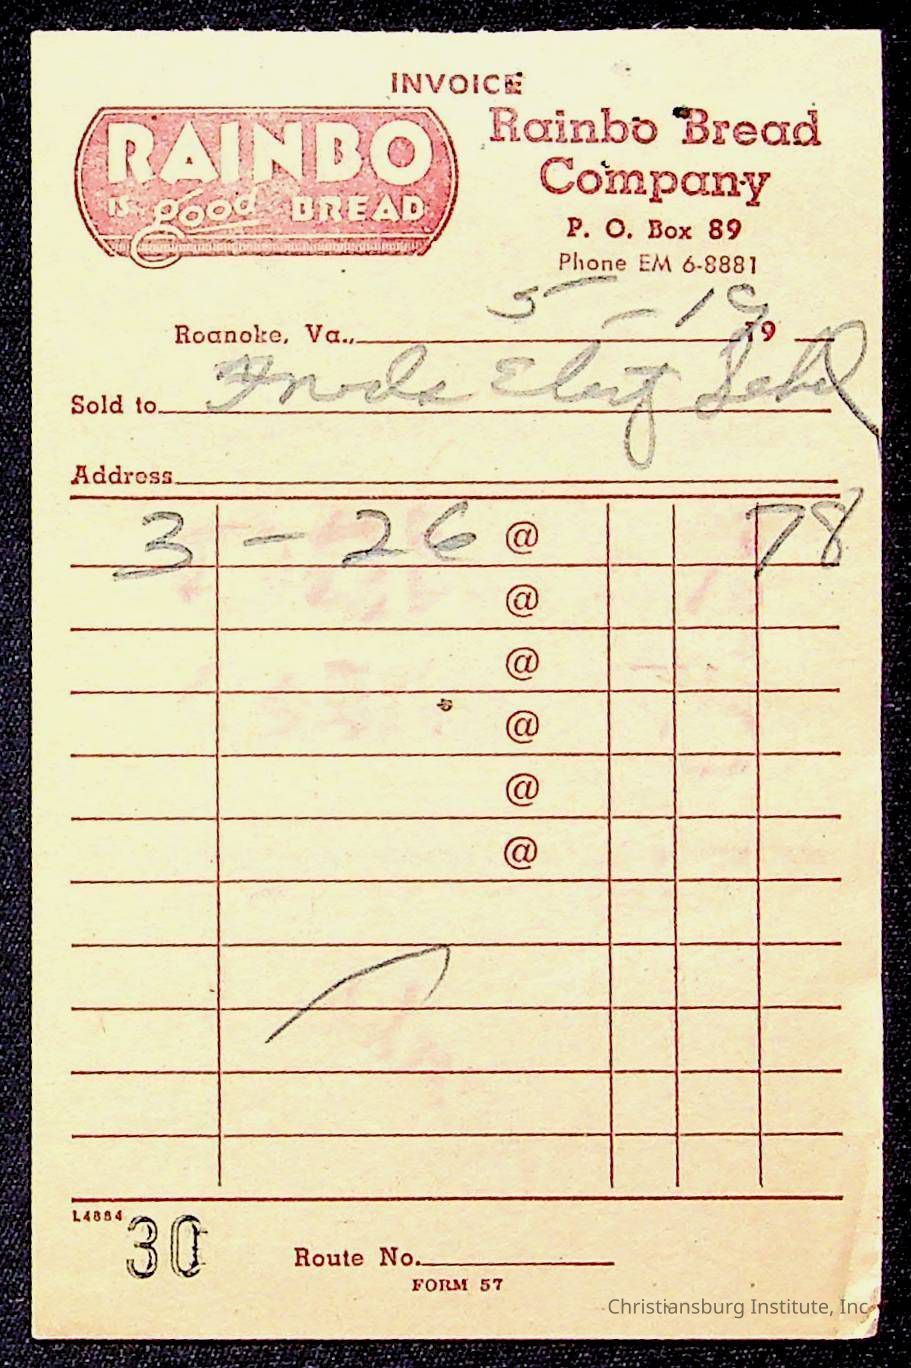 INVOICE
RAINBO
is good BREAD
Rainbo Bread
Company
P. O. Box 89
Phone EM 6-8881
5 - 19
Roanoke, Va., 19
Sold to
Address
3 - 26 @ 78
@
@
@
@
@
L4884
30
Route No.
FORM 57
Christiansburg Institute, Inc